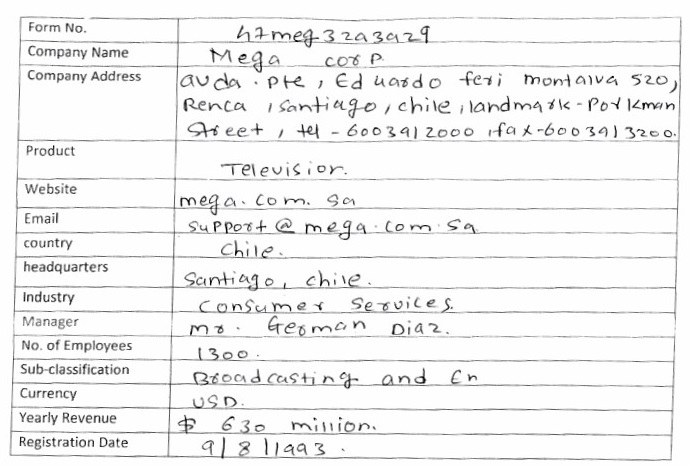 Form No. h7meg32a3a29
Company Name Mega corp
Company Address avda. pte, Eduardo feri montalva 520,
Renca, santiago, chile, landmark-Porkman
Street, tel - 6003912000, fax-6003913200.
Product Television.
Website mega.com.sa
Email support@mega.com.sa
country Chile.
headquarters Santiago, chile.
Industry Consumer Services.
Manager mr. German Diaz.
No. of Employees 1300.
Sub-classification Broadcasting and En
Currency USD.
Yearly Revenue $ 630 million.
Registration Date 9/8/1993.